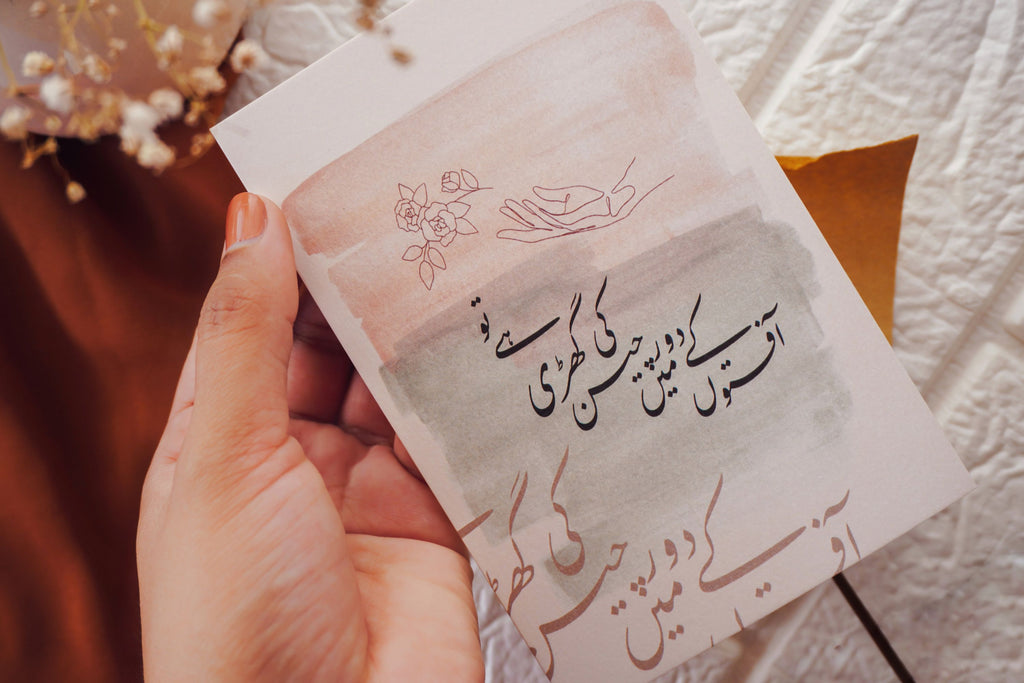 آفتوں کے دور میں چین کی گھڑی ہے تو
آفتوں کے دور میں چین کی گھڑ